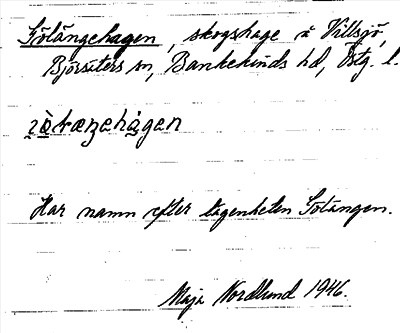 Sötängehagen, skogshage å Villsjö,
Björsäters sn, Bankekinds hd, Östg. l.
Har namn efter lägenheten Sötängen.
Maja Nordlund 1946.